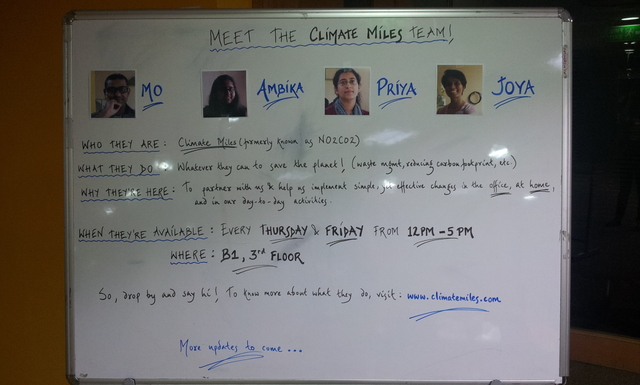 MEET THE CLIMATE MILES TEAM!
MO AMBIKA PRIYA JOYA
WHO THEY ARE: Climate Miles (formerly known as NO2CO2)
WHAT THEY DO: Whatever they can to save the planet! (waste mgmt, reducing carbon footprint, etc.)
WHY THEY'RE HERE: To partner with us & help us implement simple, yet effective changes in the office, at home,
and in our day-to-day activities.
WHEN THEY'RE AVAILABLE: EVERY THURSDAY & FRIDAY FROM 12PM-5PM
WHERE: B1, 3rd FLOOR
So, drop by and say hi! To know more about what they do, visit: www.climatemiles.com
More updates to come...